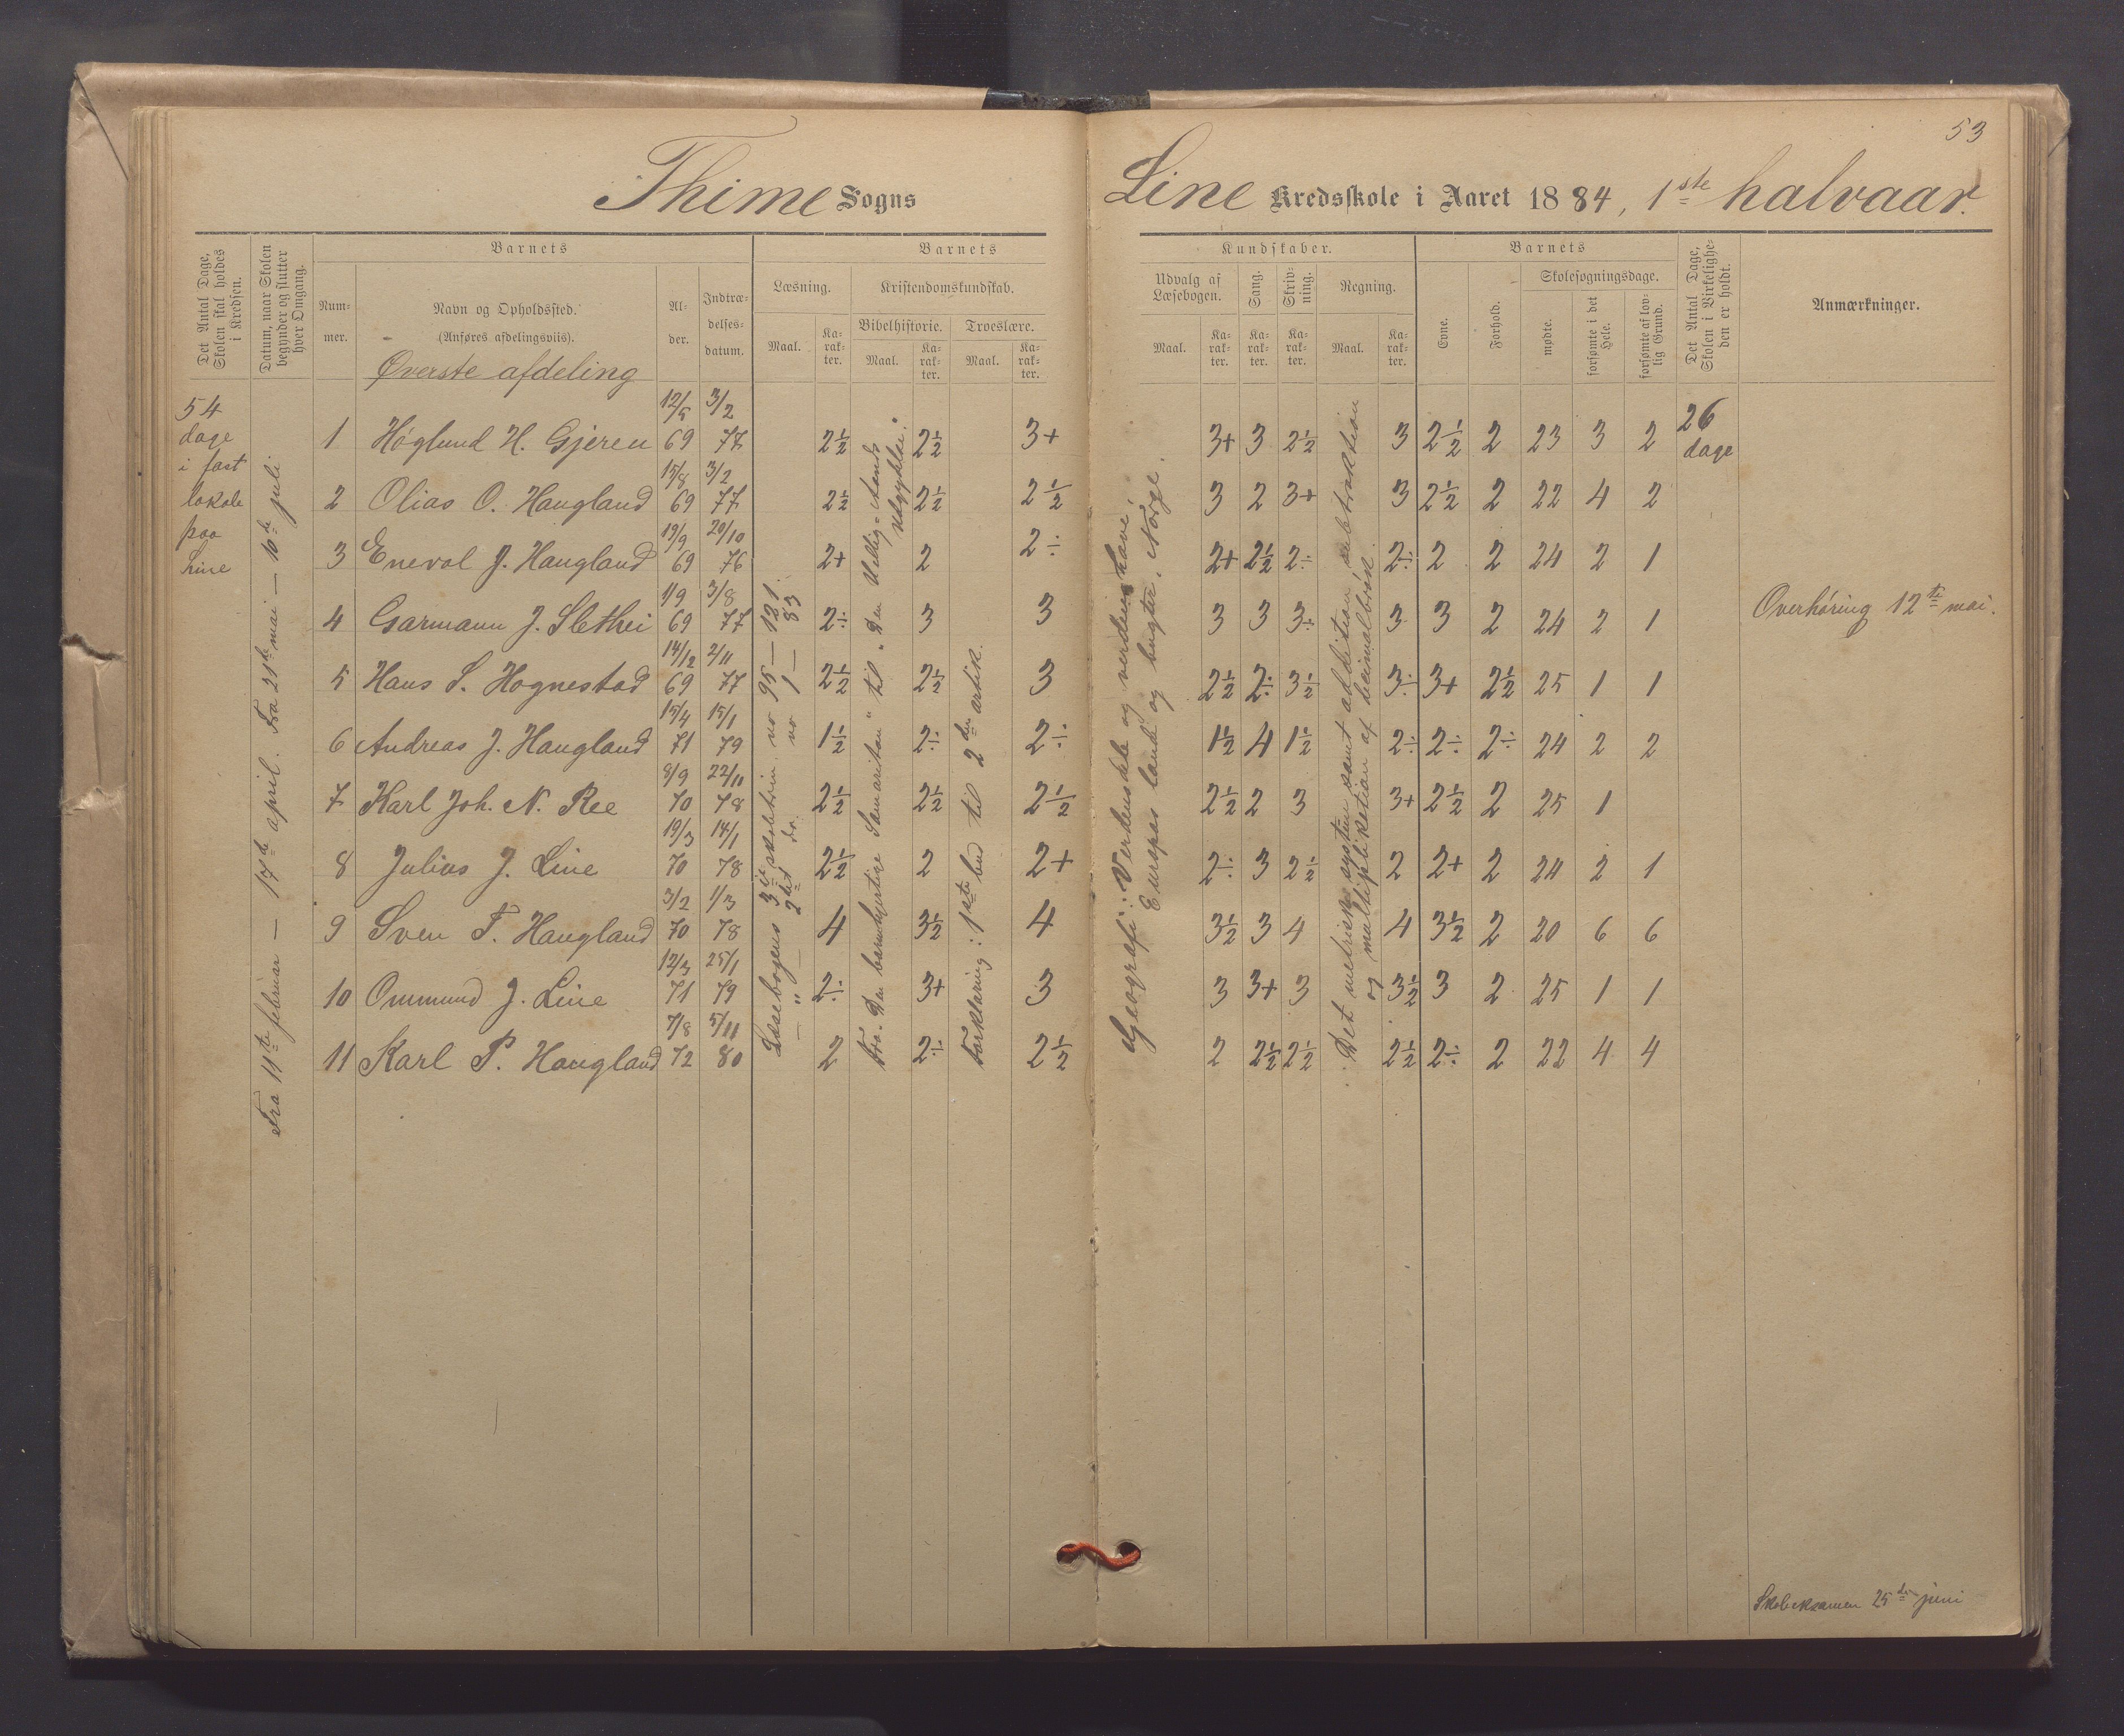 53
Thime Sogns
Line Kredsskole i Aaret 1884, 1ste halvaar.
Det Antal Dage, Skolen skal holdes i Kredsen.
Datum, naar Skolen begynder og slutter hver Omgang.
Barnets
Num-mer.
Navn og Opholdssted.
(Anføres afdelingsvis).
Al-der.
Indtræ-delses-datum.
Barnets
Læsning.
Maal.
Ka-rak-ter.
Kristendomskundskab.
Bibelhistorie.
Maal.
Ka-rak-ter.
Troeslære.
Maal.
Ka-rak-ter.
Kundskaber.
Udvalg af Læsebogen.
Maal.
Ka-rak-ter.
Sang.
Ka-rak-ter.
Skriv-ning.
Ka-rak-ter.
Regning.
Maal.
Ka-rak-ter.
Barnets
Evne.
Forhold.
Skolesøgningsdage.
mødte.
forsømte i det Hele.
forsømte af lov-lig Grund.
Det Antal Dage, Skolen i Virkelighe-den er holdt.
Anmærkninger.
Øverste afdeling
54
dage
i fast
lokale
paa
Line
Fra 11te februar — 17de april. Fra 21de mai — 10de juli
1 Høglund H. Gjeren 12/5 69 3/2 77 2½ 2½ 3+ 3+ 3 2½ 3 2½ 2 23 3 2 26 dage
2 Olias O. Haugland 15/8 69 3/2 77 2½ 2½ 2½ 3 2 3+ 3 2½ 2 22 4 2
3 Enevol J. Haugland 19/9 69 20/10 76 2+ 2 2÷ 2+ 2½ 2÷ 2÷ 2 2 24 2 1
4 Garmann J. Slethei 1/9 69 3/8 77 2÷ 3 3 3 3 3÷ 3 3 2 24 2 1 Overhøring 12te mai.
5 Hans S. Hognestad 14/12 69 2/11 77 2½ 2½ 3 2½ 2÷ 3½ 3÷ 3+ 2½ 25 1 1
6 Andreas J. Haugland 15/4 71 15/1 79 1½ 2÷ 2÷ 1½ 4 1½ 2÷ 2÷ 2÷ 24 2 2
7 Karl Joh. N. Ree 8/9 70 22/11 78 2½ 2½ 2½ 2½ 2 3 3+ 2½ 2 25 1
8 Julius J. Line 19/3 70 14/1 78 2½ 2 2+ 2÷ 3 2½ 2 2+ 2 24 2 1
9 Sven T. Haugland 3/2 70 1/3 78 4 3½ 4 3½ 3 4 4 3½ 2 20 6 6
10 Ommund J. Line 12/3 71 25/1 79 2÷ 3+ 3 3 3+ 3 3½ 3 2 25 1 1
11 Karl P. Haugland 7/8 72 5/11 80 2 2÷ 2½ 2 2½ 2½ 2½ 2÷ 2 22 4 4
Læsebogens 3die skoletrin no 95 — 121.
— „ — 2det do. no 1 — 83
Fra „Den barmhjertige Samaritan“ til „Den Hellig-Aands
udgydelse“.
Forklaring: 1ste bud til 2den artik.
Geografi: Verdensdele og verdenshave,
Europas lande og bugter. Norge.
Det metriske system samt addition, subtraktion
og multiplikation af decimalbrøk.
Skoleeksamen 25de juni